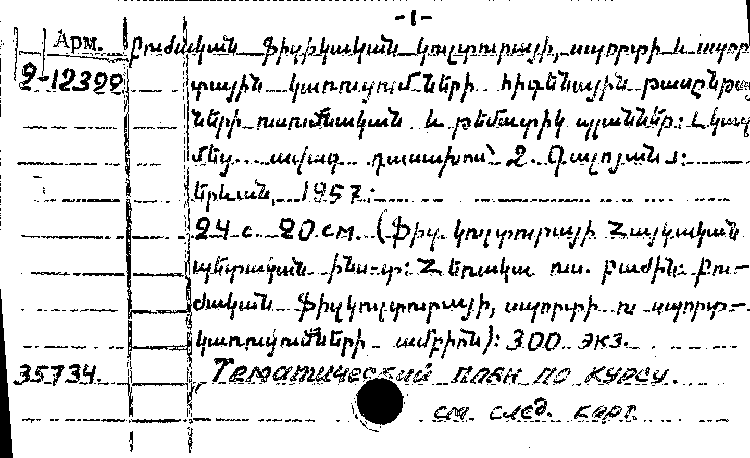 -1-
Арм. Բուժական ֆիզիկական կուլտուրայի, սպորտի և սպոր-
2-12399 տային կառուցումների հիգենային դասընթաց-
ների ուսումնական և թեմատիկ պլաններ: Կազ-
մեց. ավագ դասախոս՝ Հ. Գալոյան:
Երևան, 1957:
24 с. 20 см. (Ֆիզ. կուլտուրայի Հայկական
պետական ինս-տ: Հեռակա ուս. բաժին: Բու-
ժական ֆիզկուլտուրայի, սպորտի ու սպորտ-
կառուցումների ամբիոն): 300 экз.
35734. Тематический план по курсу.
см. след. карт.